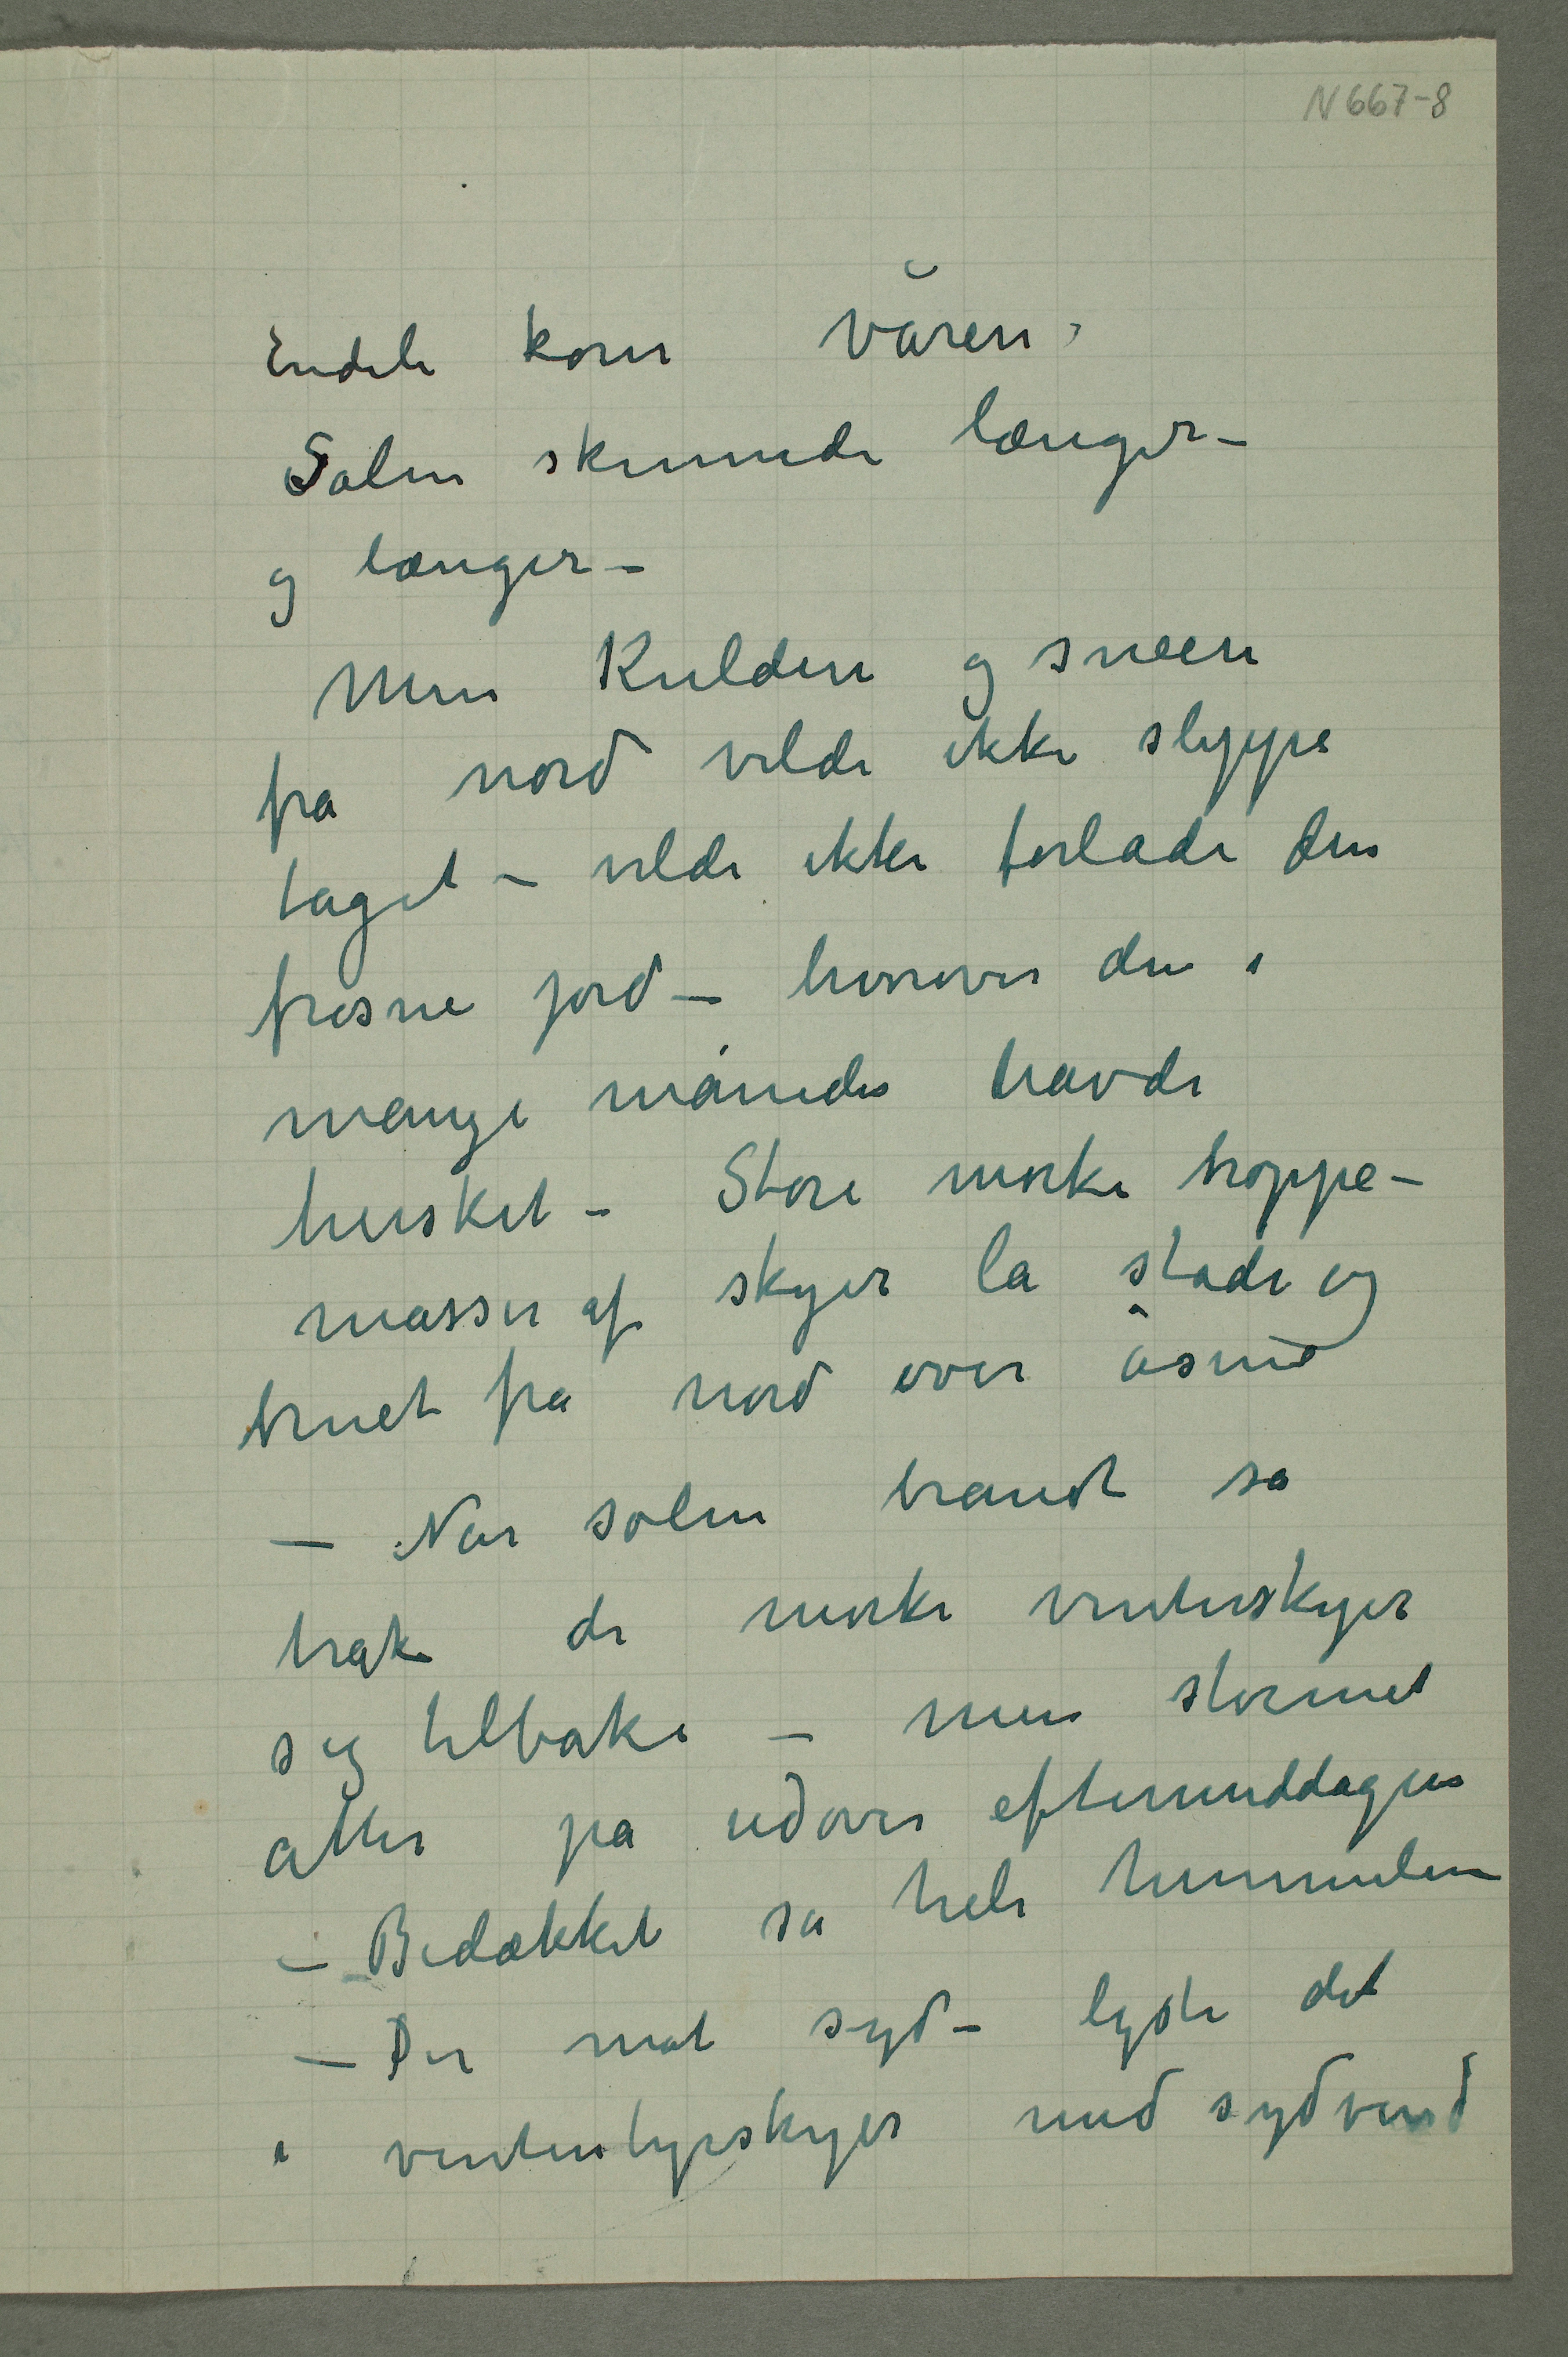 N 667-8
Endeli kom våren.
Solen skinnede længer –
og længer –
Men Kulden og sneen
fra nord vilde ikke slippe
taget – vilde ikke forlade den
frosne jord – hvorover den i
mange måneder havde
hersket – Store mørke troppe-
masser af skyer la stade og
truet fra nord over åsene
– Når solen brændt så
trak de mørke vinterskyer
sig tilbake – men stormet
atter på udover eftermiddagen
– Bedækket så hele himmelen
– Der mot syd – lyste det
i skyer med sydvind